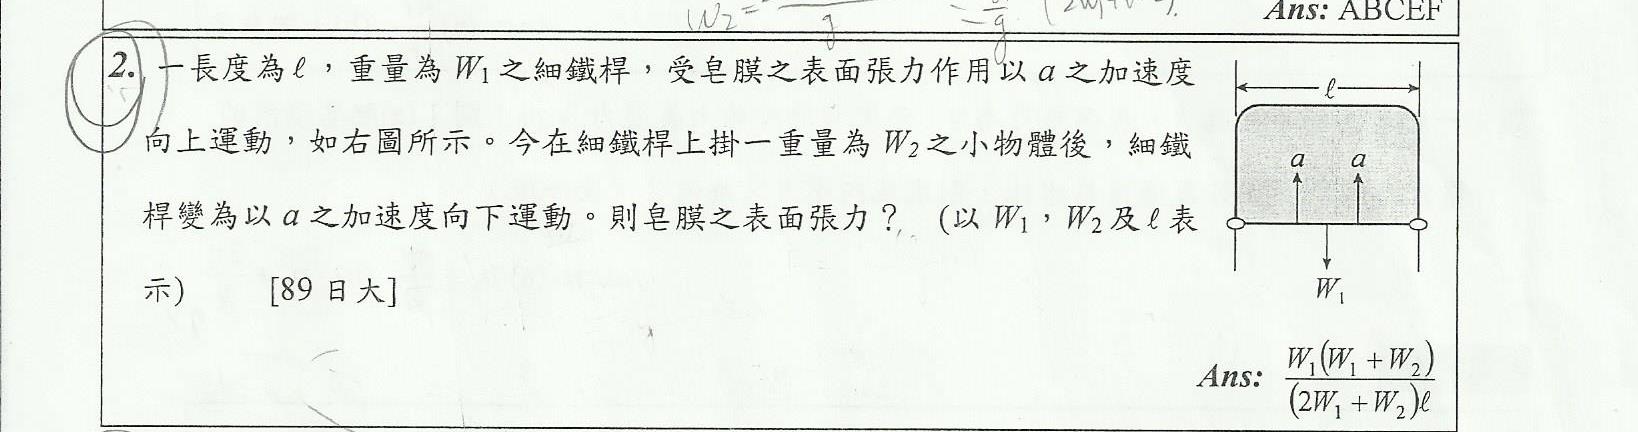 Ans: ABCEF
2. 一長度為ℓ，重量為 W₁ 之細鐵桿，受皂膜之表面張力作用以 a 之加速度
向上運動，如右圖所示。今在細鐵桿上掛一重量為 W₂ 之小物體後，細鐵
桿變為以 a 之加速度向下運動。則皂膜之表面張力？ (以 W₁，W₂ 及 ℓ 表
示) [89 日大]
ℓ
a a
W₁
Ans: W₁(W₁ + W₂) / (2W₁ + W₂)ℓ